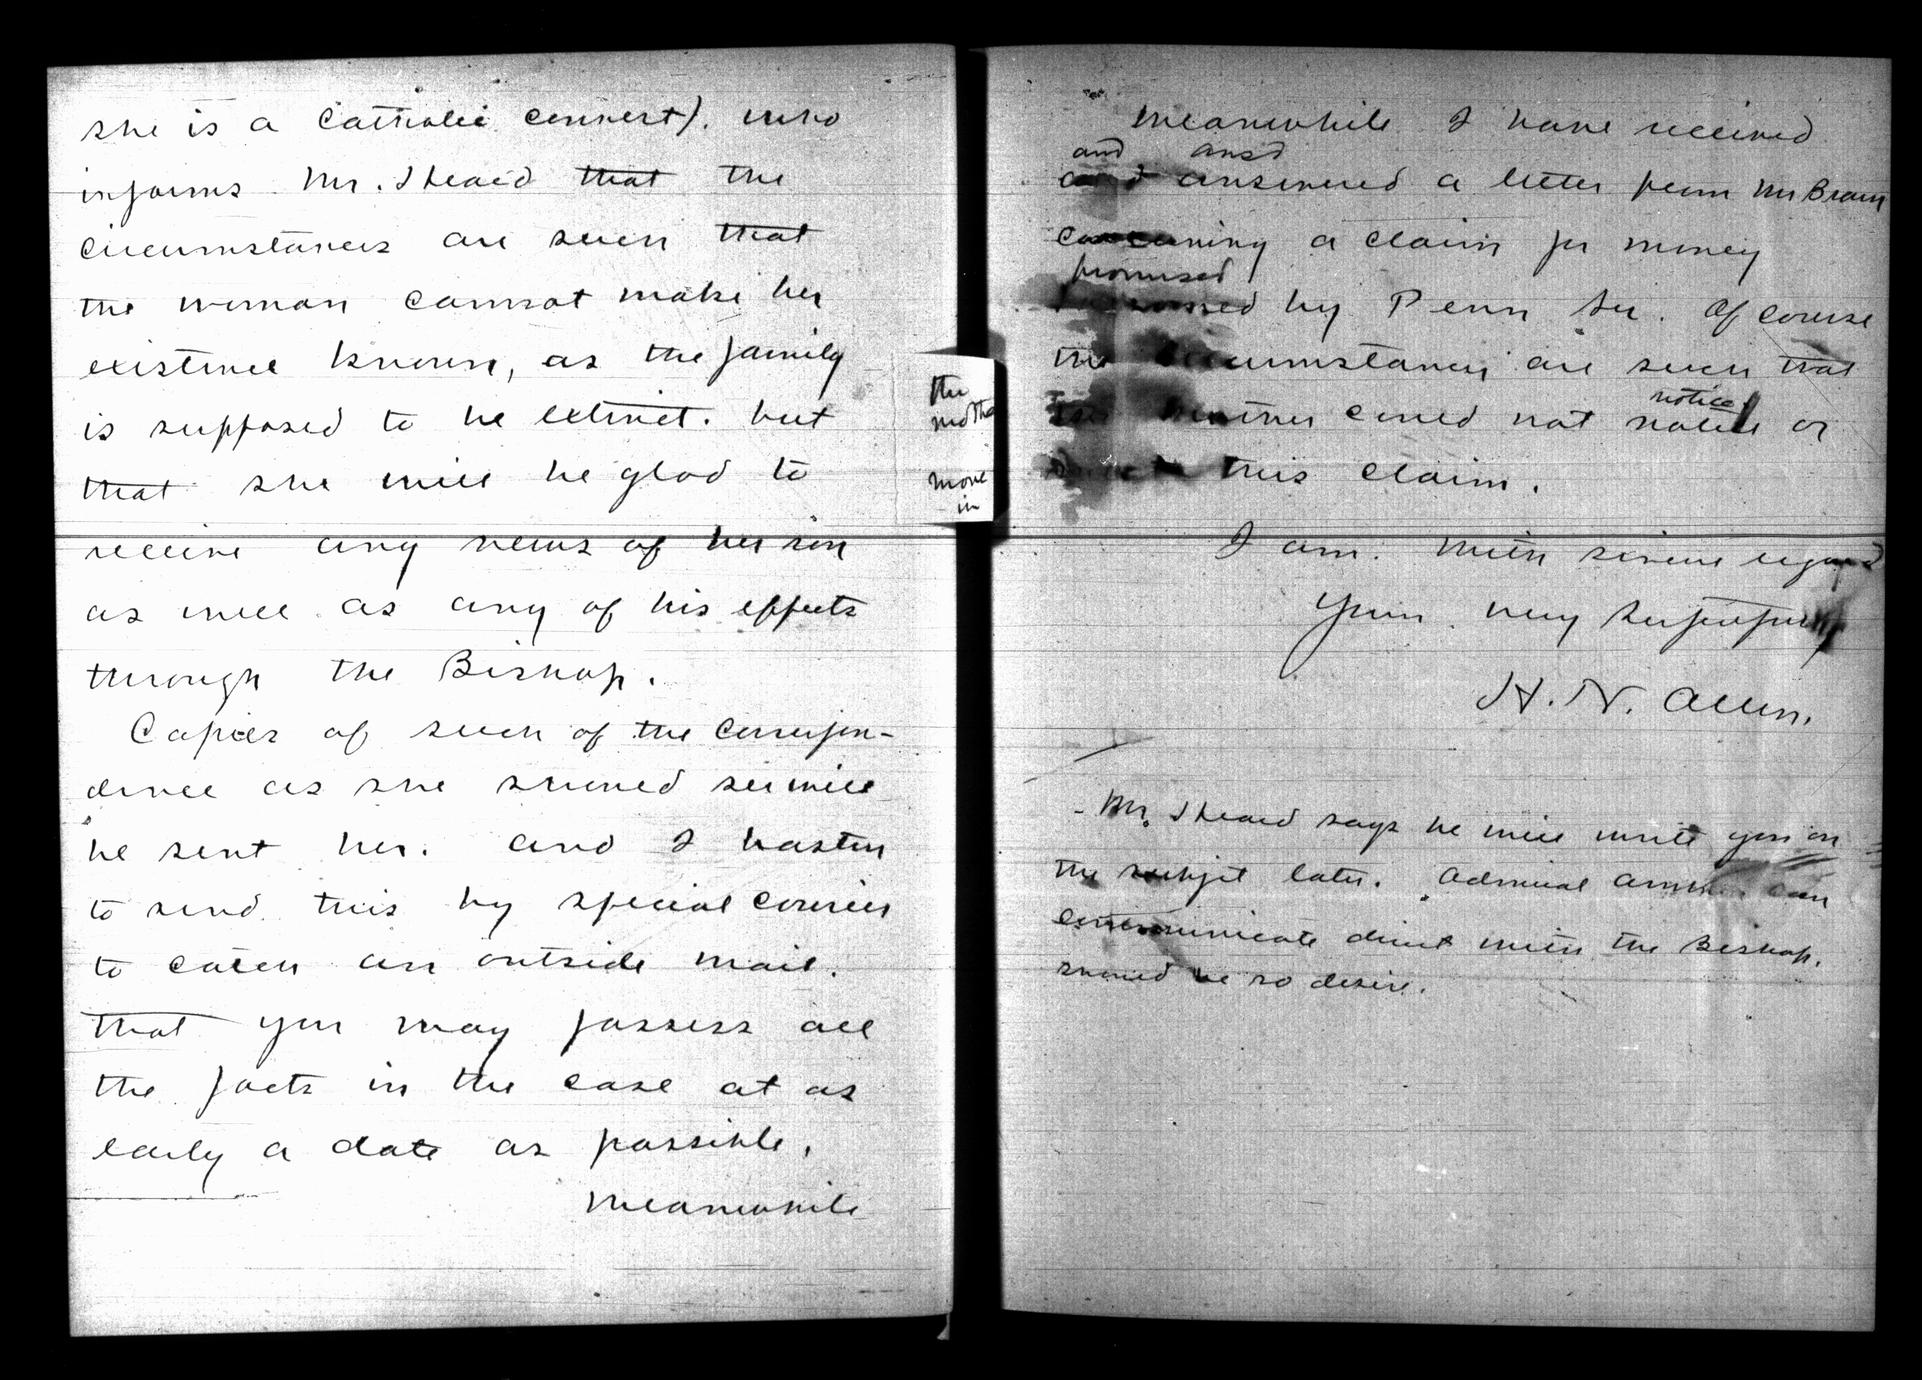 she is a Catholic convert). who
informs Mr. Heard that the
circumstances are such that
the woman cannot make her
existence known, as the family
is supposed to be extinct. but
that she will be glad to
receive any news of her son
as well as any of his effects
through the Bishop.
Copies of such of the correspon-
dence as she should see will
be sent her. and I hasten
to send this by special courier
to catch an outside mail.
that you may possess all
the facts in the case at as
early a date as possible.
Meanwhile
the
mother
more
in
Meanwhile I have received
and ansd
and answered a letter from Mr Brown
concerning a claim for money
promised
promised by Penn Sr. Of course
the circumstances are such that
notice
the mother could not notice or
this claim.
I am. with sincere regard
Yours very Respectfully
H. N. Allen.
- Mr. Heard says he will write you on
the subject later. Admiral can
communicate direct with the Bishop.
should he so desire.